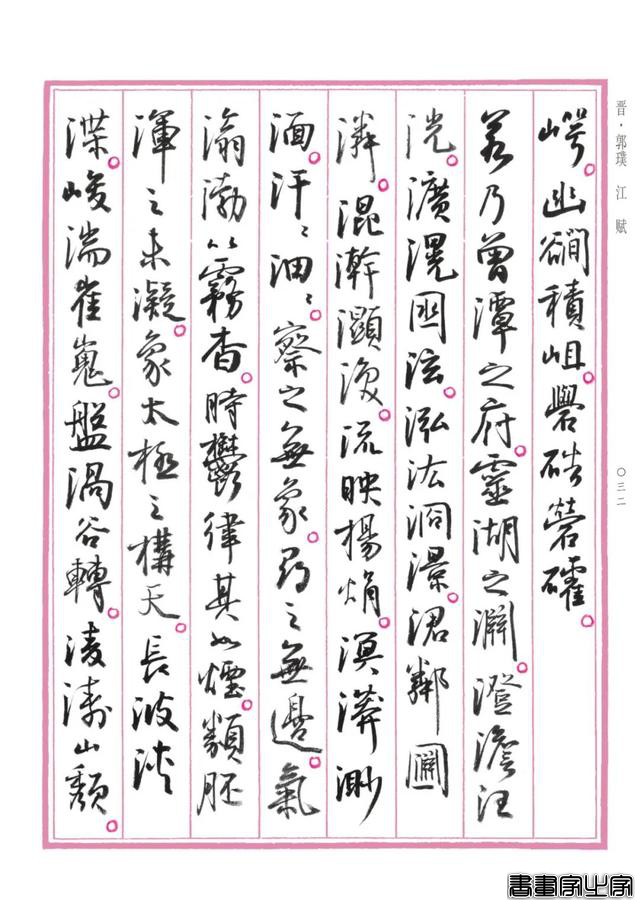 崿。幽積岨礐硞營礭。
若乃曾潭之府。靈湖之淵。澄澹汪
洸。瀇滉囦泫。泓汯洞澋。涒鄰㘤
潾。混澣灝渙。流映楊焆。溟漭渺
湎。汗汗沺沺。察之無象。尋之無邊。氣
滃渤以霧杳。時鬱律其如煙。類胚
渾之未凝。象太極之構天。長波浹
渫。峻湍崔嵬。盤渦谷轉。淩濤山頹。
晋·郭璞 江赋
〇三二
書畫家必字